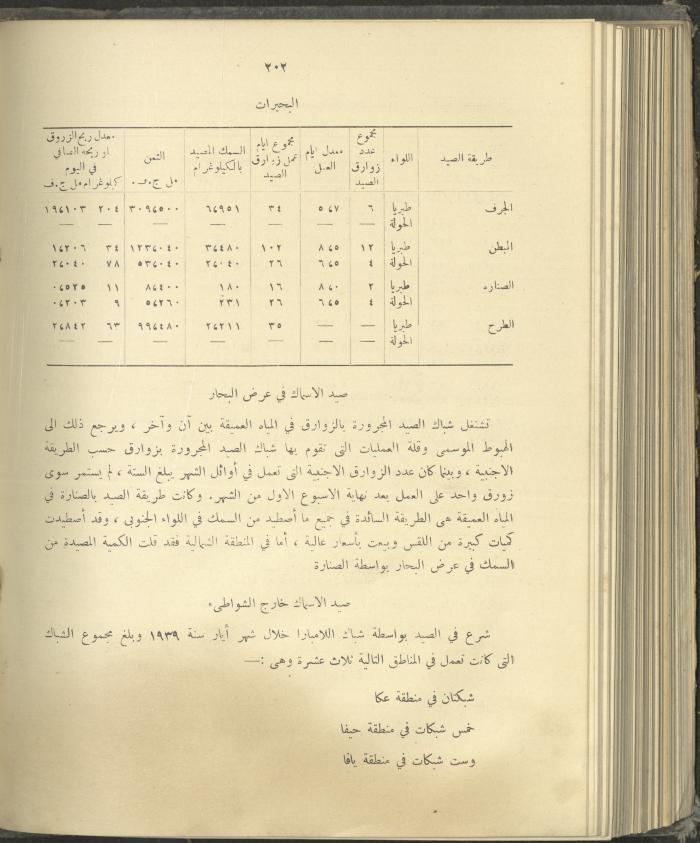 ٢٠٢
البحيرات
طريقة الصيد | اللواء | مجموع عدد زوارق الصيد | معدل ايام العمل | مجموع ايام عمل زوارق الصيد | السمك المصيد بالكيلوغرام | الثمن مل ج.ف. | معدل ربح الزروق او ربحه الصافي في اليوم كيلوغرام مل ج.ف
الجرف | طبريا | ٦ | ٥٬٦٧ | ٣٤ | ٦٬٩٥١ | ٣٠٩٬٥٠٠ | ٢٠٤ | ٩٬١٠٣
الحولة | — | — | — | — | — | — | —
البطن | طبريا | ١٢ | ٨٬٥ | ١٠٢ | ٣٬٤٨٠ | ١٢٣٬٠٤٠ | ٣٤ | ١٬٢٠٦
الحولة | ٤ | ٦٬٥ | ٢٦ | ٢٬٠٤٠ | ٥٣٬٠٤٠ | ٧٨ | ٢٬٠٤٠
الصنارة | طبريا | ٢ | ٨٬٠ | ١٦ | ١٨٠ | ٨٬٤٠٠ | ١١ | ٠٬٥٢٥
الحولة | ٤ | ٦٬٥ | ٢٦ | ٢٣١ | ٥٬٢٦٠ | ٩ | ٠٬٢٠٣
الطرح | طبريا | — | — | ٣٥ | ٢٬٢١١ | ٩٩٬٤٨٠ | ٦٣ | ٢٬٨٤٢
الحولة | — | — | — | — | — | — | —
صيد الاسماك في عرض البحار
تشتغل شباك الصيد المجرورة بالزوارق في المياه العميقة بين آن وآخر ، ويرجع ذلك الى
الهبوط الموسمى وقلة العمليات التى تقوم بها شباك الصيد المجرورة بزوارق حسب الطريقة
الاجنبية ، وبينما كان عدد الزوارق الاجنبية التى تعمل في أوائل الشهر يبلغ الستة ، لم يستمر سوى
زورق واحد على العمل بعد نهاية الاسبوع الاول من الشهر. وكانت طريقة الصيد بالصنارة في
المياه العميقة هى الطريقة السائدة في جميع ما أصطيد من السمك في اللواء الجنوبى ، وقد أصطيدت
كميات كبيرة من اللقس وبيعت بأسعار عالية ، أما في المنطقة الشمالية فقد قلت الكمية المصيدة من
السمك في عرض البحار بواسطة الصنارة
صيد الاسماك خارج الشواطىء
شرع في الصيد بواسطة شباك اللامبارا خلال شهر أيار سنة ١٩٣٩ وبلغ مجموع الشباك
التى كانت تعمل في المناطق التالية ثلاث عشرة وهى :—
شبكتان في منطقة عكا
خمس شبكات في منطقة حيفا
وست شبكات في منطقة يافا